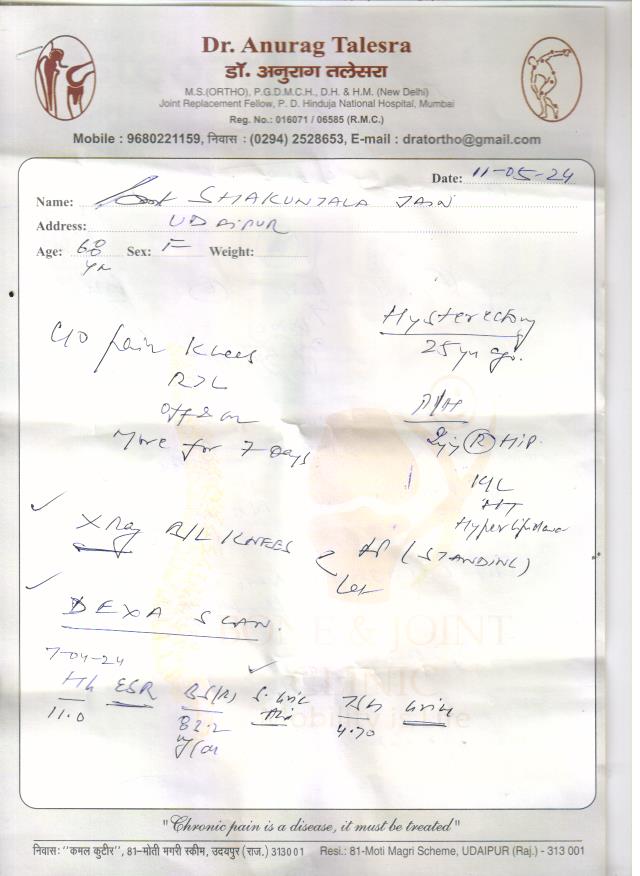 Dr. Anurag Talesra
डॉ. अनुराग तलेसरा
M.S.(ORTHO), P.G.D.M.C.H., D.H. & H.M. (New Delhi)
Joint Replacement Fellow, P. D. Hinduja National Hospital, Mumbai
Reg. No.: 016071 / 06585 (R.M.C.)
Mobile : 9680221159, निवास : (0294) 2528653, E-mail : dratortho@gmail.com
Date: 11-05-24
Name: SHAKUNTALA JAIN
Address: UDAIPUR
Age: 68 yr Sex: F Weight:
Hysterectomy
25 yr ago.
C/O pain Knees
R>L
off & on
More for 7 Days
P/H
Inj (R) Hip
K/L
HT
X Ray B/L KNEES AP (STANDING)
Lat
DEXA SCAN.
BONE & JOINT
CLINIC
Mobility is life
7-04-24
Hb ESR BS(R) S. Uric TSH Urine
11.0 82.2 4.70
"Chronic pain is a disease, it must be treated"
निवास: "कमल कुटीर", 81-मोती मगरी स्कीम, उदयपुर (राज.) 313001 Resi.: 81-Moti Magri Scheme, UDAIPUR (Raj.) - 313 001